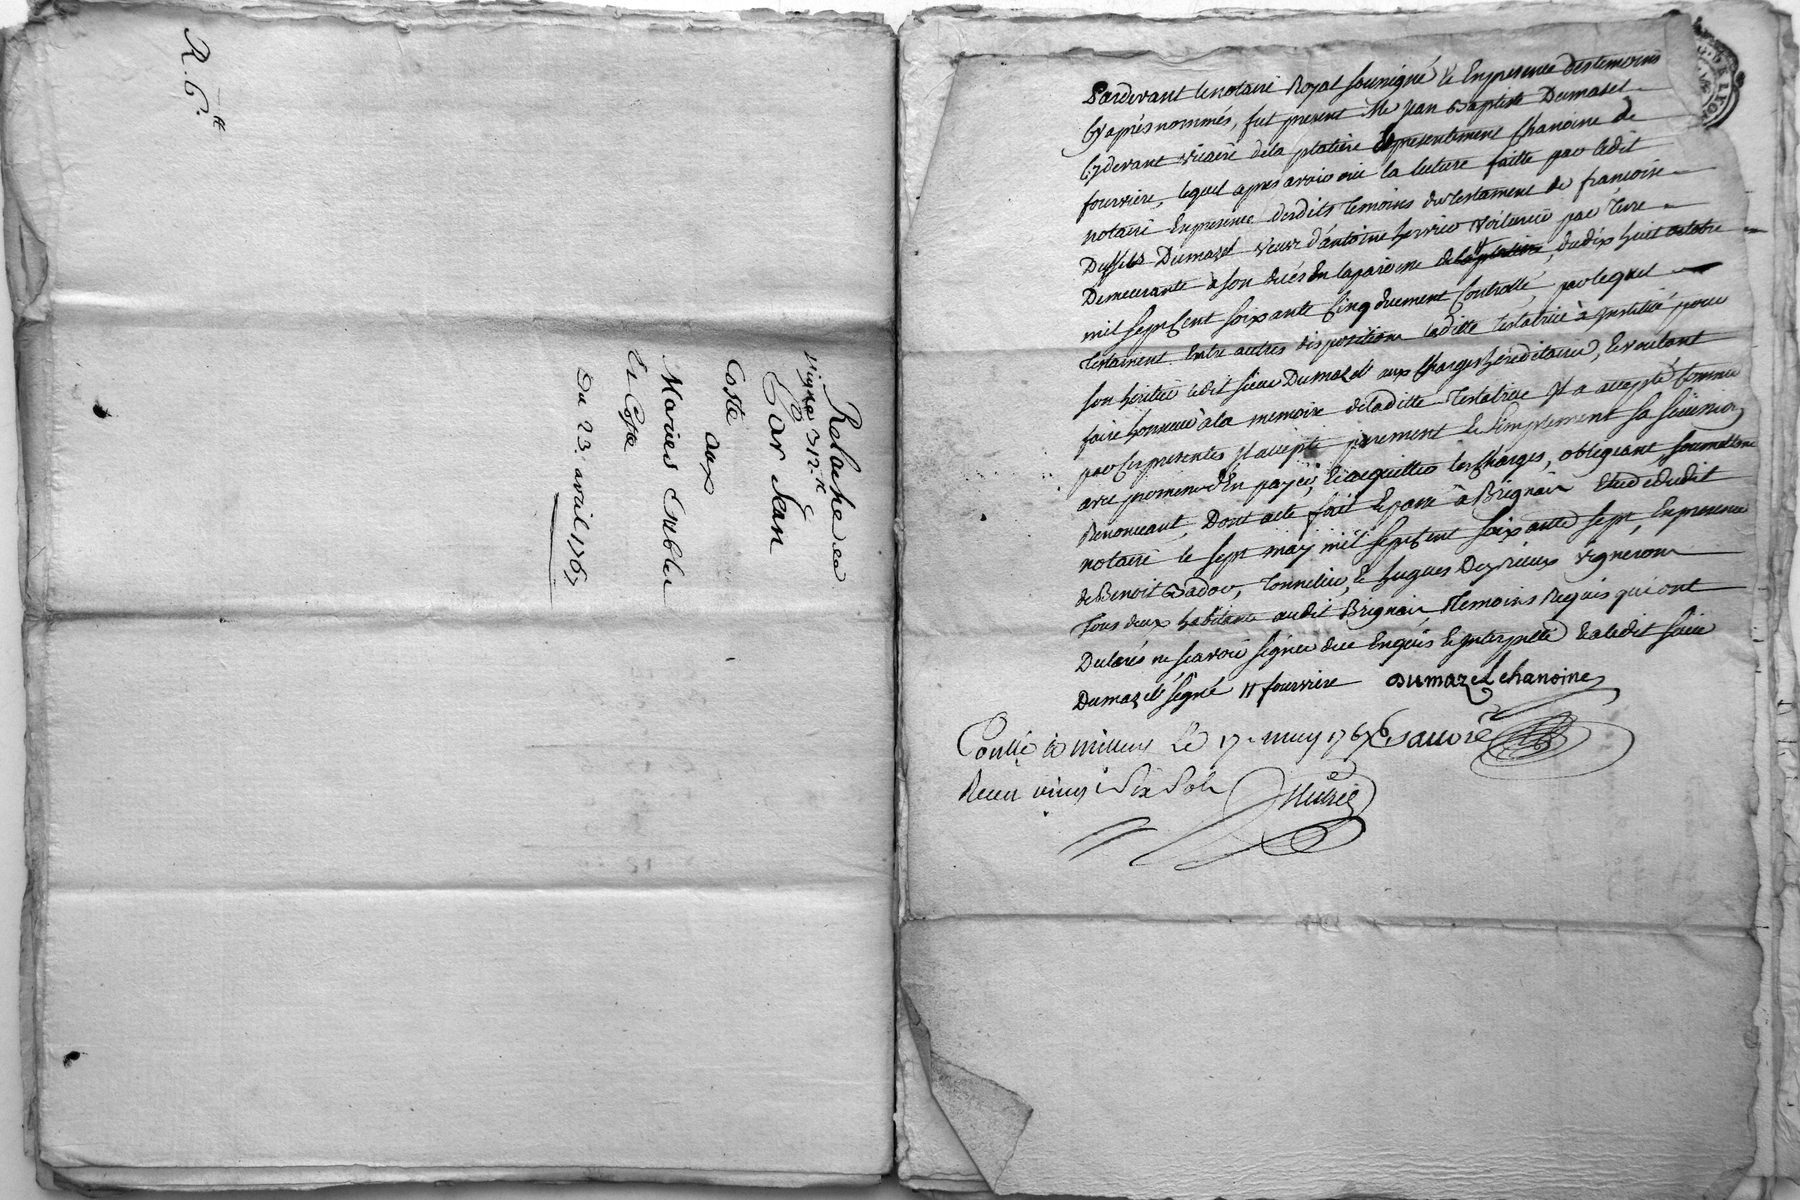 R. 6.tt
Relache en
vigne 312 tt
Par Jean
Coste
aux
Maries Crublier
et Coste
Du 23. avril 1767
Pardevant le notaire Royal soussigné & En presence des temoins
Cy après nommés, fut present Me Jean Baptiste Dumazel
Cy devant vicaire de la platiere & presentement Chanoine de
fourviere, lequel apres avoir oui la lecture faitte par ledit
notaire En presence desdits temoins du testament de francoise
Dumazel veuve d'antoine voiturier par terre
Demeurante a son decés En la paroisse de la platiere, du dix huit octobre
mil sept Cent soixante Cinq duement Controllé, par lequel
testament Entre autres dispositions laditte testatrice à institué pour
son heritier ledit sieur Dumazel aux Charges hereditaires, Et voulant
faire honneur à la memoire de laditte testatrice Il a accepté Comme
par Ces presentes Il accepte purement & simplement sa succession
avec promesse d'En payer, & acquitter les Charges, obligeant soumettant
Renonceant, Dont acte fait & passé à Brignais Etude dudit
notaire le sept may mil sept Cent soixante sept, En presence
de Benoit Badou, tonnelier, & hugues Desvieux vigneron
tous deux habitants audit Brignais temoins Requis qui ont
Declarés ne sçavoir signer de ce Enquis & Interpellé & a ledit sieur
Dumazel signé // fourviere Dumazel chanoine
Conllé a millery Le 17 may 1767
Receu vingt Six Sols